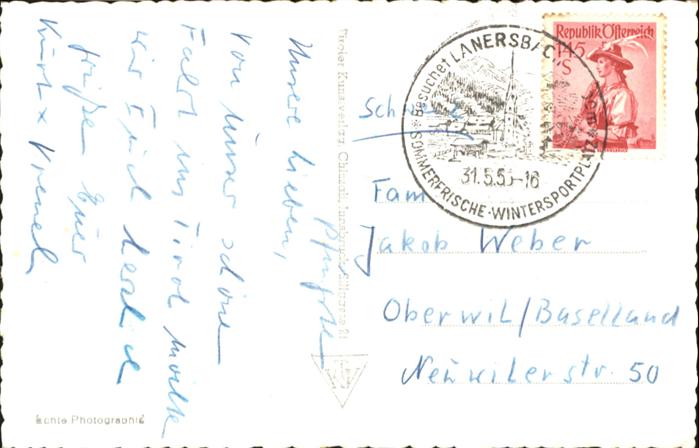 Unsere Lieben,
von unser schönen Pfingst
Fahrt ins Tirol möchte
wir Euch herzlich
grüße Euer
Kurt x
Schweiz
Fam
Jakob Weber
Oberwil/Baselland
Neuwilerstr. 50
Republik Österreich
1.45
S
Besuchet LANERSBACH
SOMMERFRISCHE-WINTERSPORTPLATZ
31.5.55-16
Tiroler Kunstverlag Chizzali, Innsbruck
Echte Photographie